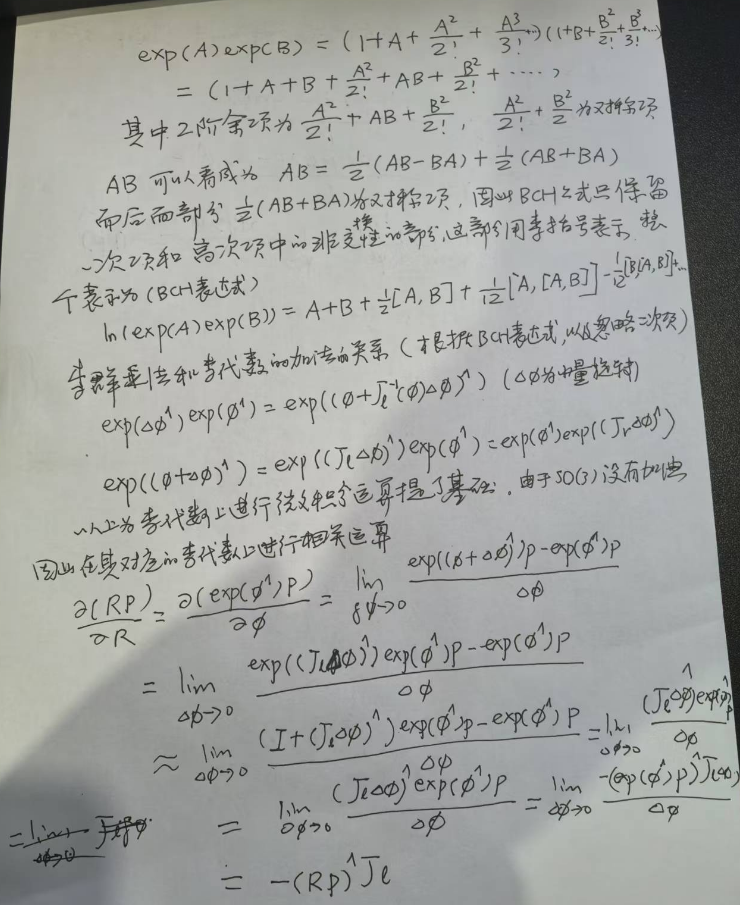 exp(A)exp(B) = (1+A+A²/2!+A³/3!+…)(1+B+B²/2!+B³/3!+…)
= (1+A+B+A²/2!+AB+B²/2!+……)
其中2阶余项为 A²/2!+AB+B²/2!, A²/2!+B²/2为对称项
AB 可以看成为 AB = 1/2(AB-BA)+1/2(AB+BA)
而后面部分 1/2(AB+BA)为对称项, 因此BCH公式只保留
一次项和高次项中的非交换性的部分,这部分用李括号表示, 整
个表示为(BCH表达式)
ln(exp(A)exp(B)) = A+B+1/2[A,B]+1/12[A,[A,B]]-1/12[B,[A,B]]+…
李群乘法和李代数的加法的关系(根据BCH表达式,以及忽略二次项)
exp(Δφ^)exp(φ^) = exp((φ+Jℓ⁻¹(φ)Δφ)^) (Δφ为小量旋转)
exp((φ+Δφ)^) = exp((JℓΔφ)^)exp(φ^) = exp(φ^)exp((JrΔφ)^)
以上为李代数上进行微积分运算提了基础. 由于SO(3)没有加法
因此在其对应的李代数上进行相关运算
∂(Rp)/∂R = ∂(exp(φ^)p)/∂φ = lim δφ→0 (exp((φ+Δφ)^)p-exp(φ^)p)/Δφ
= lim Δφ→0 (exp((JℓΔφ)^)exp(φ^)p-exp(φ^)p)/Δφ
≈ lim Δφ→0 ((I+(JℓΔφ)^)exp(φ^)p-exp(φ^)p)/Δφ = lim Δφ→0 ((JℓΔφ)^exp(φ^)p)/Δφ
= lim Δφ→0 ((JℓΔφ)^exp(φ^)p)/Δφ = lim Δφ→0 (-(exp(φ^)p)^JℓΔφ)/Δφ
= -(Rp)^Jℓ